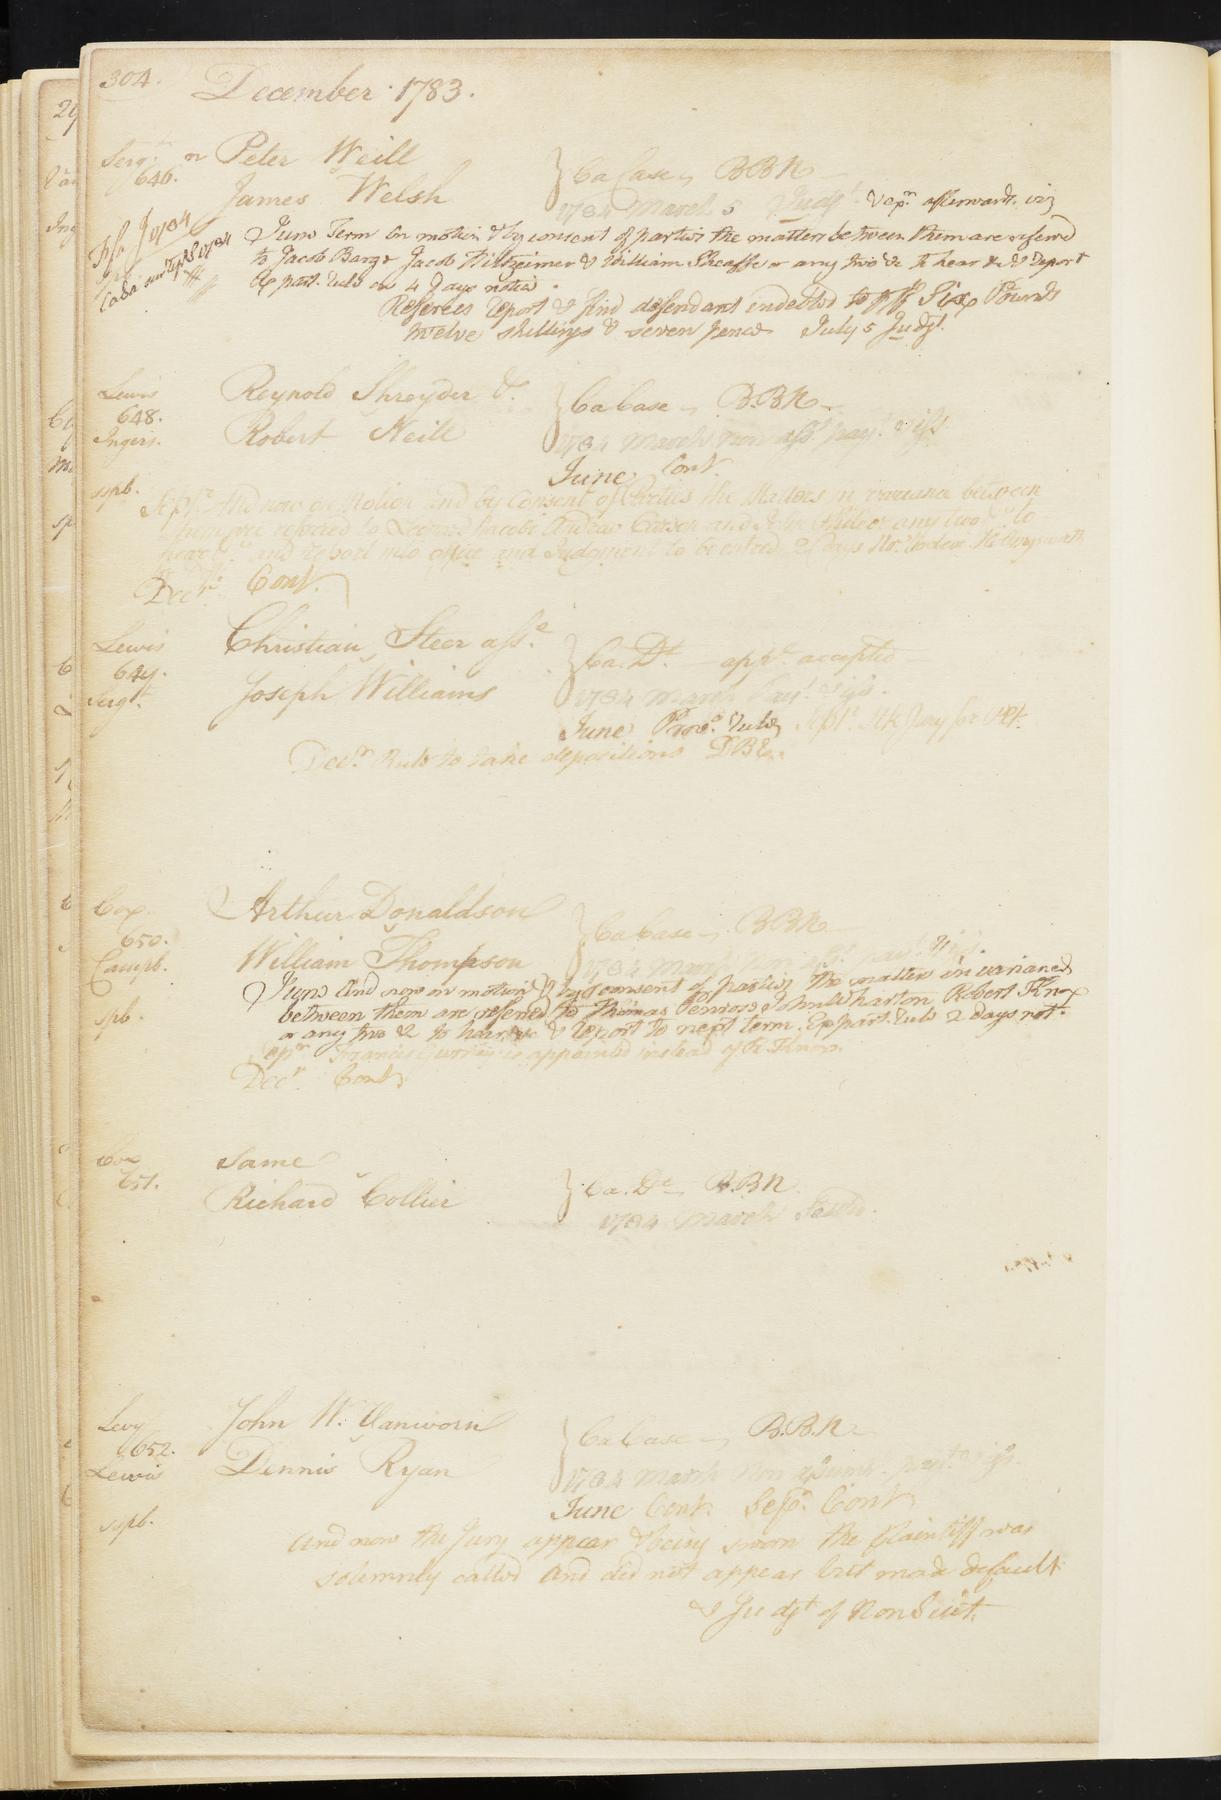 304. December 1783.
Serg.t n Peter Weill
646.
James Welsh
Ca Case BBR
1784 March 5 Judgt. & Sepr. afterwards viz
Fifa Jy 1784
Casa 1784
June Term On motion & by consent of parties the matters between them are refered
to Jacob Barge Jacob Hiltzheimer & William Sheaffe or any two &c to hear &c & report
Ex part. rule on 4 days notice.
Referees report & find defendant indebted to plff Six Pounds
twelve shillings & seven pence July 5 Judgt.
Lewis Reynold Shreyder &c.
648.
Ingers. Robert Neill
Ca Case BBR
1784 March non asst. payt. & iss
June Cont.
sspb.
Sepr. And now on Motion and by Consent of Parties the Matters in variance between
them are referred to Leonard Jacoby Andrew Carson and John or any two &c to
hear &c and report into office and Judgment to be entred 2 Days No.
Decr. Cont.
Lewis Christian Steer asse.
649.
Sergt. Joseph Williams
Ca. Dt. appce. accepted
1784 March Payt. & iss.
June Proc. rule Sept. Stk Jury for
Decr. Rule to take depositions DBE.
Cox. Arthur Donaldson
650.
Campb. William Thompson
Ca Case BBR
1784 March non asst. payt. & iss.
spb.
June And now on motion & by consent of parties the matter in variance
between them are refered to Thomas Penrose John Wharton Robert Knox
or any two &c to hear &c & report to next term. Ex part. rule 2 days not.
Sepr. Francis Gurney is appointed instead of R. Knox.
Decr. Cont.
Cox Same
651.
Richard Collier
Ca. Dt. BBR
1784 March
Levy John W. Vanworn
652.
Lewis Dennis Ryan
Ca Case B.B.R.
1784 March Non assumt. payt. & iss.
June Cont. Sepr. Cont
sspb.
And now the Jury appear & being sworn the plaintiff was
solemnly called and did not appear but made default
& Judgt of Non Suit.